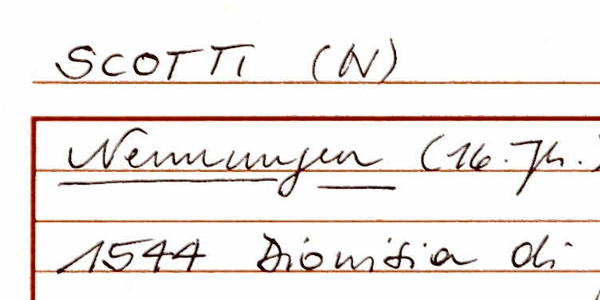 SCOTTI (N)
Nennungen (16. Jh.)
1544 Dionisia di